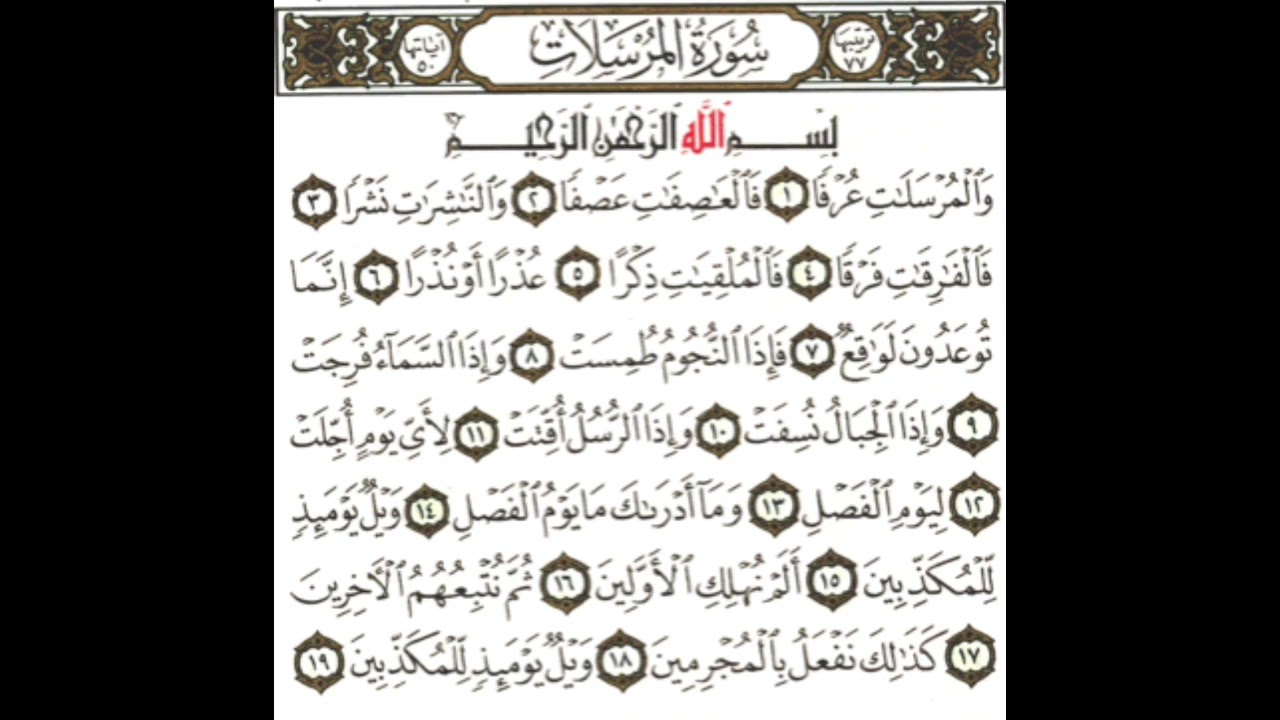 ترتيبها ٧٧ سُورَةُ المُرْسَلَات آيَاتها ٥٠
بِسْمِ اللَّهِ الرَّحْمَٰنِ الرَّحِيمِ
وَٱلْمُرْسَلَٰتِ عُرْفًا ١ فَٱلْعَٰصِفَٰتِ عَصْفًا ٢ وَٱلنَّٰشِرَٰتِ نَشْرًا ٣
فَٱلْفَٰرِقَٰتِ فَرْقًا ٤ فَٱلْمُلْقِيَٰتِ ذِكْرًا ٥ عُذْرًا أَوْ نُذْرًا ٦ إِنَّمَا
تُوعَدُونَ لَوَٰقِعٌ ٧ فَإِذَا ٱلنُّجُومُ طُمِسَتْ ٨ وَإِذَا ٱلسَّمَآءُ فُرِجَتْ
٩ وَإِذَا ٱلْجِبَالُ نُسِفَتْ ١٠ وَإِذَا ٱلرُّسُلُ أُقِّتَتْ ١١ لِأَيِّ يَوْمٍ أُجِّلَتْ
١٢ لِيَوْمِ ٱلْفَصْلِ ١٣ وَمَآ أَدْرَىٰكَ مَا يَوْمُ ٱلْفَصْلِ ١٤ وَيْلٌ يَوْمَئِذٍ
لِّلْمُكَذِّبِينَ ١٥ أَلَمْ نُهْلِكِ ٱلْأَوَّلِينَ ١٦ ثُمَّ نُتْبِعُهُمُ ٱلْأَخِرِينَ
١٧ كَذَٰلِكَ نَفْعَلُ بِٱلْمُجْرِمِينَ ١٨ وَيْلٌ يَوْمَئِذٍ لِّلْمُكَذِّبِينَ ١٩